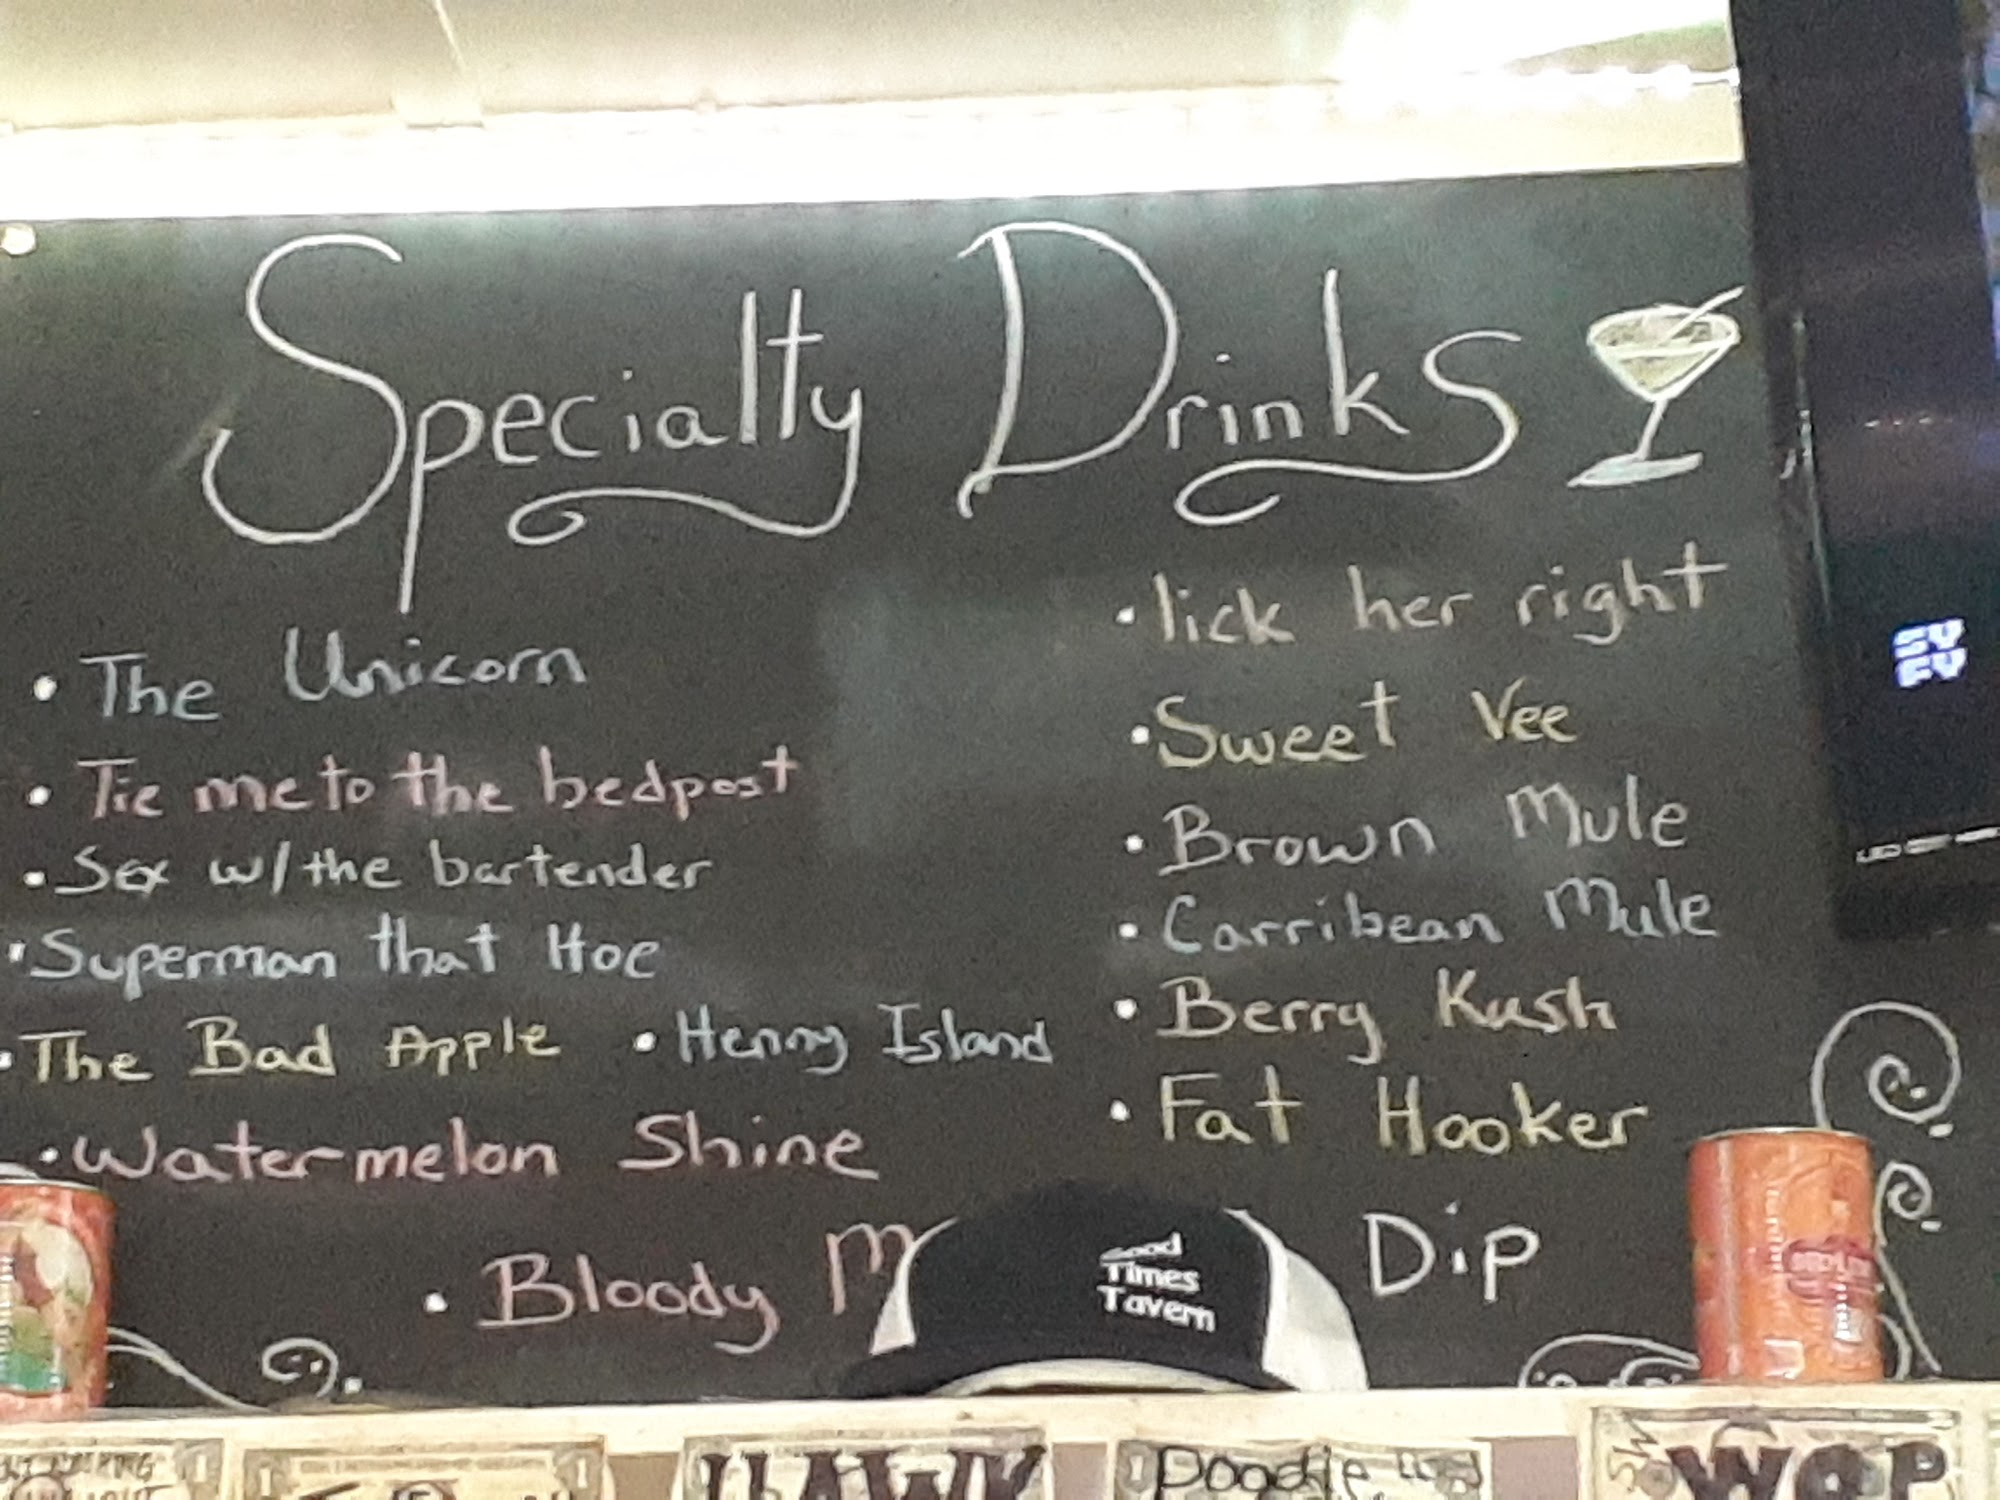 Specialty Drinks
• The Unicorn
• Tie me to the bedpost
• Sex w/the bartender
• Superman that Hoe
• The Bad Apple • Henny Island
• Watermelon Shine
• lick her right
• Sweet Vee
• Brown Mule
• Carribean Mule
• Berry Kush
• Fat Hooker
• Bloody M Dip
Good
Times
Tavern
HAWK
Doodle
WOP